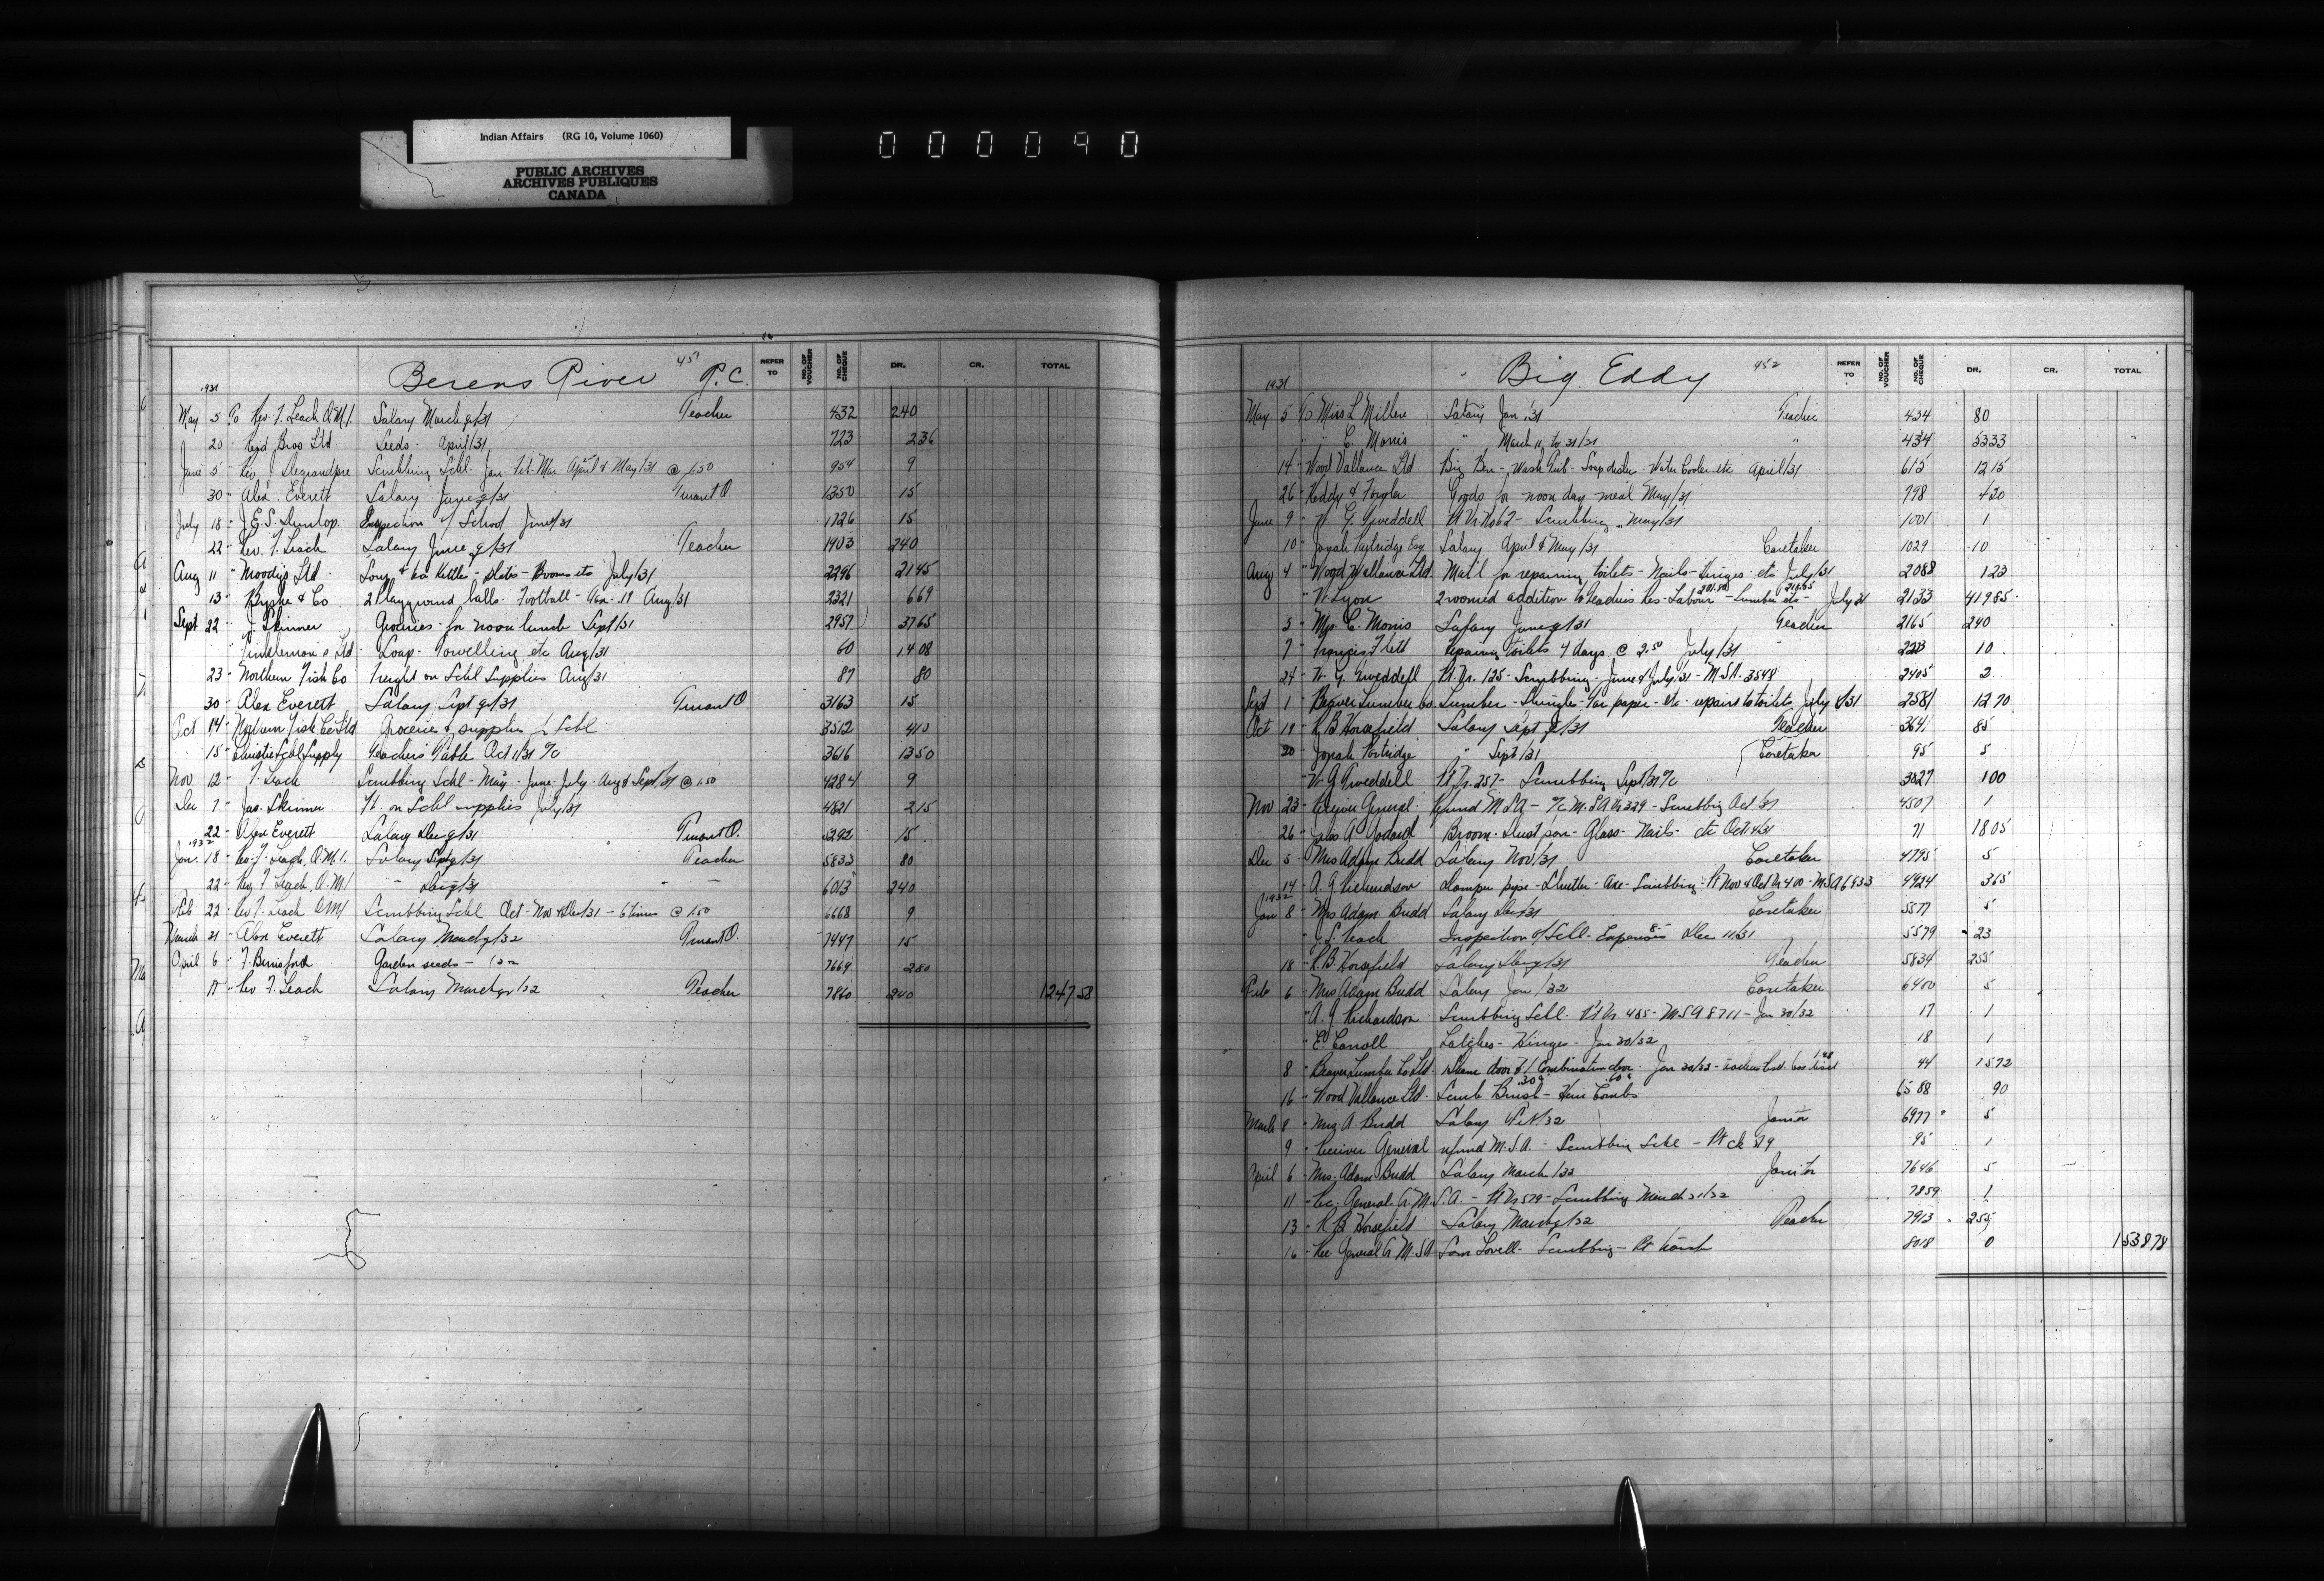 Indian Affairs (RG 10, Volume 1060)
PUBLIC ARCHIVES
ARCHIVES PUBLIQUES
CANADA
000090
1931 Berens River 451 R.C. REFER TO NO. OF VOUCHER NO. OF CHEQUE DR. CR. TOTAL
May 5 To Rev. F. Leach O.M.I. Salary March q/31 Teacher 432 240
20 " Reid Bros Ltd Seeds - April/31 723 2 36
June 5 " Rev J Degrandpre Scrubbing Schl. Jan. Feb. Mar. April & May/31 @ 1.50 954 9
30 " Alex. Everett Salary June q/31 Truant O. 1350 15
July 18 " J.E.S. Dunlop. Inspection of School June/31 1726 15
22 " Rev. F. Leach Salary June q/31 Teacher 1903 240
Aug 11 " Moodys Ltd Soup & tea Kettle - Plates - Brooms etc July/31 2296 21 45
13 " & Co 2 Playground balls. Football - Aug/31 2321 6 69
Sept 22 " J. Skinner Groceries for noon lunch Sept/31 2957 37 65
" Ltd Soap - Towelling etc Aug/31 60 14 08
23 " Northern Fish Co Freight on Schl Supplies Aug/31 87 80
30 " Alex Everett Salary Sept q/31 Truant O 3163 15
Oct 14 " Northern Fish Co Ltd Groceries & supplies f Schl 3512 4 10
15 " Christie Schl Supply Teachers Table Oct 1/31 3616 13 50
Nov 12 " F. Leach Scrubbing Schl - May - June - July - Aug & Sept/31 @ 1.50 4284 9
Dec 7 " Jas. Skinner Ft. on Schl supplies July/31 4821 2 15
22 " Alex Everett Salary Dec q/31 Truant O. 5292 15
1932
Jan. 18 " Rev. F. Leach, O.M.I. Salary Sept q/31 Teacher 5833 80
22 " Rev F Leach, O.M.I " Dec q/31 " 6013 240
Feb 22 " Rev F. Leach OMI Scrubbing Schl Oct - Nov & Dec/31 - 6 times @ 1.50 6668 9
March 21 " Alex Everett Salary March q/32 Truant O. 7447 15
April 6 " F. Berrisford Garden seeds - 7669 2 80
" Rev F. Leach Salary March qr/32 Teacher 7860 240 1247 58
1931 Big Eddy 452 REFER TO NO. OF VOUCHER NO. OF CHEQUE DR. CR. TOTAL
May 5 To Miss L Millen Salary Jan/31 Teacher 434 80
" " C. Morris " March 11 to 31/31 " 434 53 33
14 " Wood Vallance Ltd Big Ben - Wash Tub - Soap dish - Water Cooler etc April/31 615 12 15
26 " & Goods for noon day meal May/31 798 4 30
June 9 " W. G. Tweddell Pt Vr. No 62 - Scrubbing May/31 1001 1
10 " Jonah Partridge Esq Salary April & May/31 Caretaker 1029 10
Aug 4 " Wood Vallance Ltd. Mat'l for repairing toilets - Nails - Hinges etc July/31 2088 1 23
" W. Lyon 2 roomed addition to Teachers Res - Labour - Lumber etc - July 31 2133 419 85
5 " Mrs C. Morris Salary June q/31 Teacher 2165 240
7 " Francis Flett Repairing toilets 4 days @ 2.50 July/31 2223 10
24 " W. G. Tweddell Pt. Vr. 125 - Scrubbing - June & July/31 - M.S.A. 3548 2405 2
Sept 1 " Beaver Lumber Co Lumber - Shingles - Tar paper - etc - repairs to toilets July/31 2581 12 70
Oct 19 " R B Horsefield Salary Sept q/31 Teacher 3641 85
20 " Jonah Partridge " Sept/31 Caretaker 95 5
" W. G Tweddell Pt. Vr. 257 - Scrubbing Sept/31 3827 1 00
Nov 23 " Receiver General Refund M.S.A. - M.S.A Vr 329 - Scrubbing Oct/31 4507 1
26 " A Broom - Dust pan - Glass - Nails - etc Oct/31 71 18 05
Dec 5 " Mrs Adam Budd Salary Nov/31 Caretaker 4795 5
14 " A. G. Richardson Damper pipe - Shutter - Axe - Scrubbing - Pt Nov & Oct Vr 400 - M.S.A 6933 4924 3 65
1932
Jan 8 " Mrs Adam Budd Salary Dec/31 Caretaker 5577 5
" J. S. Leach Inspection of Schl - Expenses Dec 11/31 5579 23
18 " R. B. Horsefield Salary Dec q/31 Teacher 5834 255
Feb 6 " Mrs Adam Budd Salary Jan/32 Caretaker 6400 5
" A. G Richardson Scrubbing Schl. Pt Vr 485 - M.S.A 8711 - Jan 30/32 17 1
" E. Carroll Latches - Hinges - Jan 30/32 18 1
8 " Beaver Lumber Co Ltd. door & 1 Combination door - Jan 30/32 - 44 15 72
16 " Wood Vallance Ltd. Scrub Brush - Combs 6588 90
March 8 " Mrs A. Budd Salary Feb/32 Janitor 6977 5
9 " Receiver General refund M.S.A. - Scrubbing Schl - Pt ch 95 1
April 6 " Mrs. Adam Budd Salary March/32 Janitor 7646 5
11 " Rec. General Cr. M.S.A. - Pt Vr 579 - Scrubbing March 31/32 7859 1
13 " R B Horsefield Salary March q/32 Teacher 7913 255
16 " Rec General Cr M.S.A Sam Lovell - Scrubbing - Pt 8018 0 1538 78